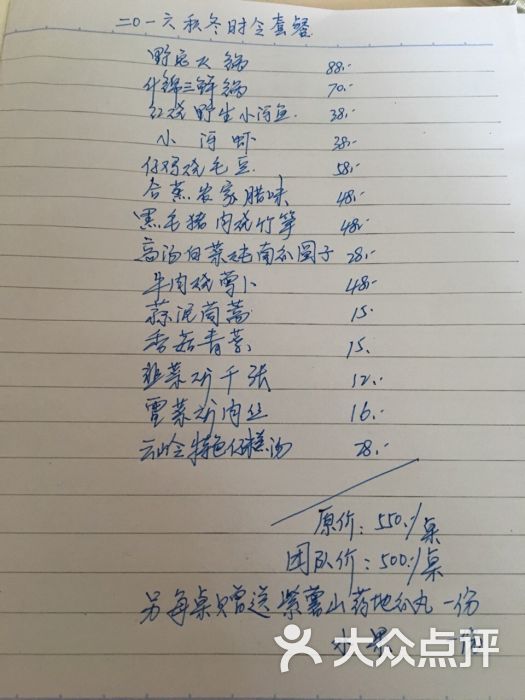 二0一六秋冬时令套餐
野兔火锅 88.-
什锦三鲜锅 70.-
红烧野生小河鱼 38.-
小河虾 38.-
仔鸡烧毛豆 58.-
合蒸农家腊味 48.-
黑毛猪肉烧竹笋 48.-
高汤白菜 南瓜圆子 28.-
牛肉烧萝卜 48.-
蒜泥茼蒿 15.
香菇青菜 15.
韭菜炒千张 12.-
雪菜炒肉丝 16.-
云岭特色仔糕汤 28.-
原价:550.-/桌
团队价:500.-/桌
另每桌赠送紫薯山药地瓜丸一份
水果
大众点评